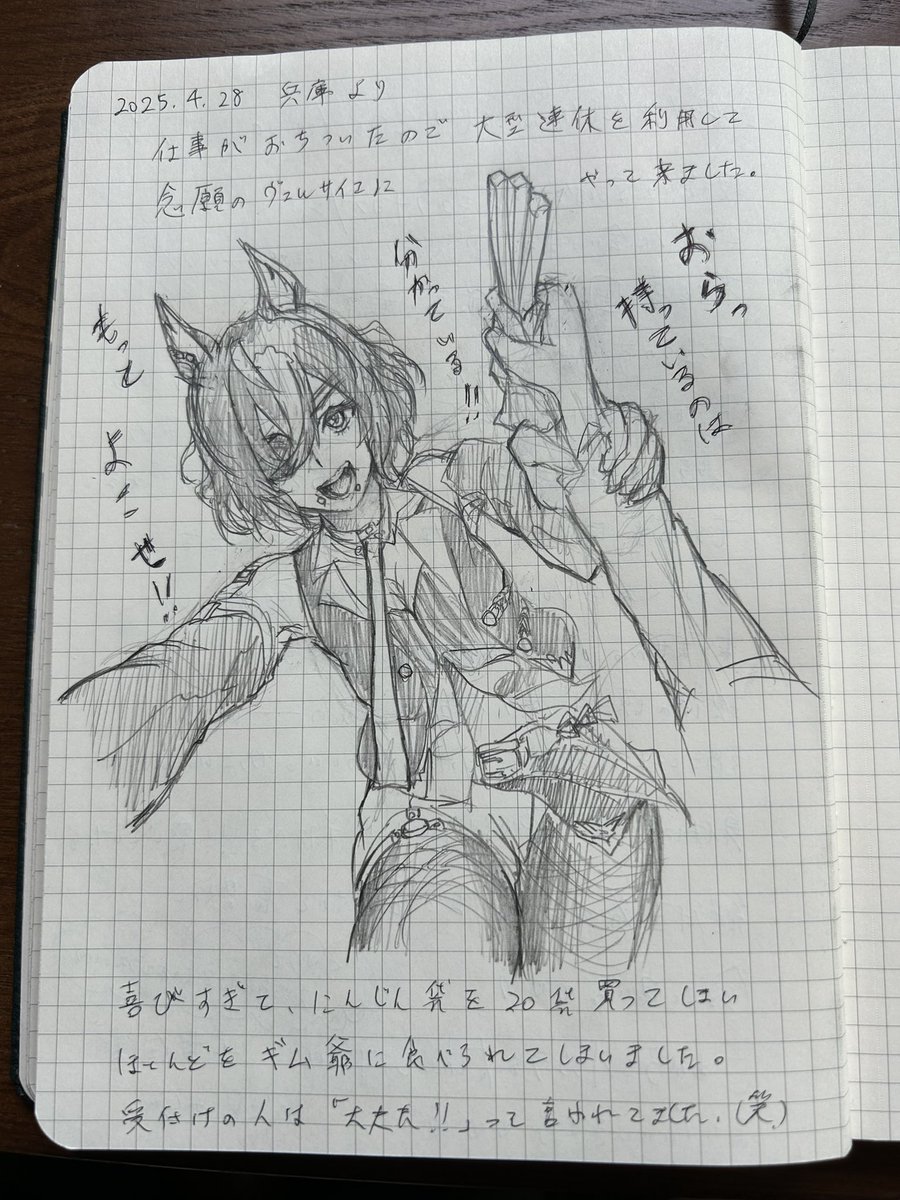 2025.4.28 兵庫より
仕事がおちついたので 大型連休を利用して
念願のヴェルサイユに やって来ました。
おらっ
持っているのは
分かっている!!
もって
よこせ!!
喜びすぎて、にんじん袋を20袋買ってしまい
ほとんどをギム爺に食べられてしまいました。
受付けの人は「大丈夫!!」って言われてました.(笑)